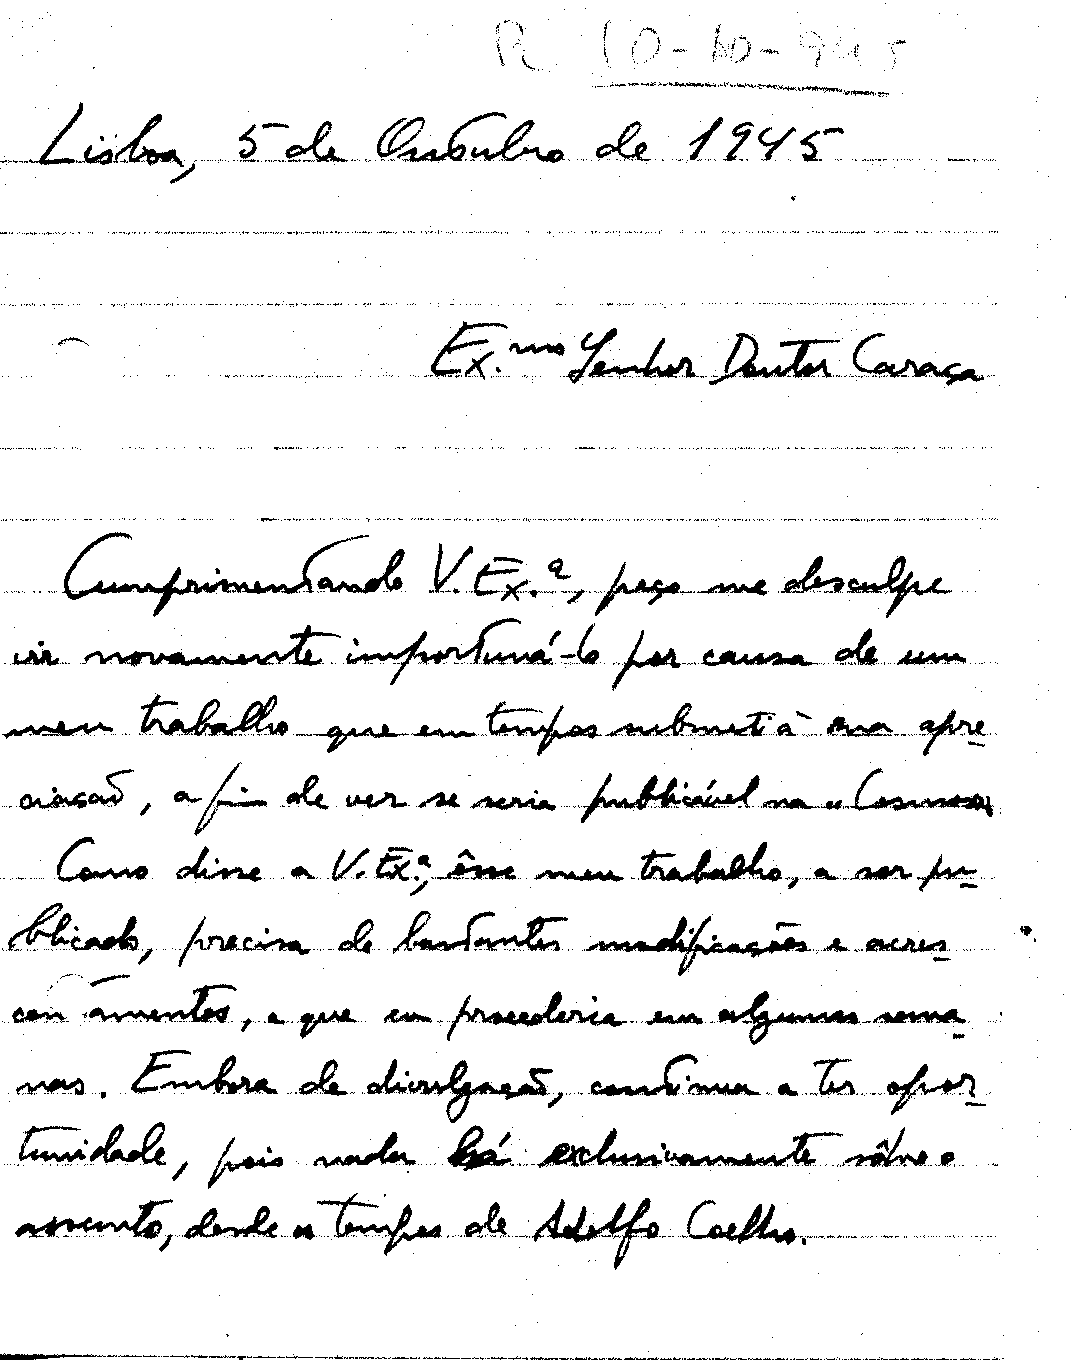 R 10-10-945
Lisboa, 5 de Outubro de 1945
Ex.mo Senhor Doutor Caraça
Cumprimentando V. Ex.ª, peço me desculpe
vir novamente importuná-lo por causa de um
meu trabalho que em tempos submeti à sua apre-
ciação, a fim de ver se seria publicável na "Cosmos".
Como disse a V. Ex.ª, êsse meu trabalho, a ser pu-
blicado, precisa de bastantes modificações e acres-
centamentos, a que eu procederia em algumas sema-
nas. Embora de divulgação, continua a ter opor-
tunidade, pois nada há exclusivamente sôbre o
assunto, desde os tempos de Adolfo Coelho.